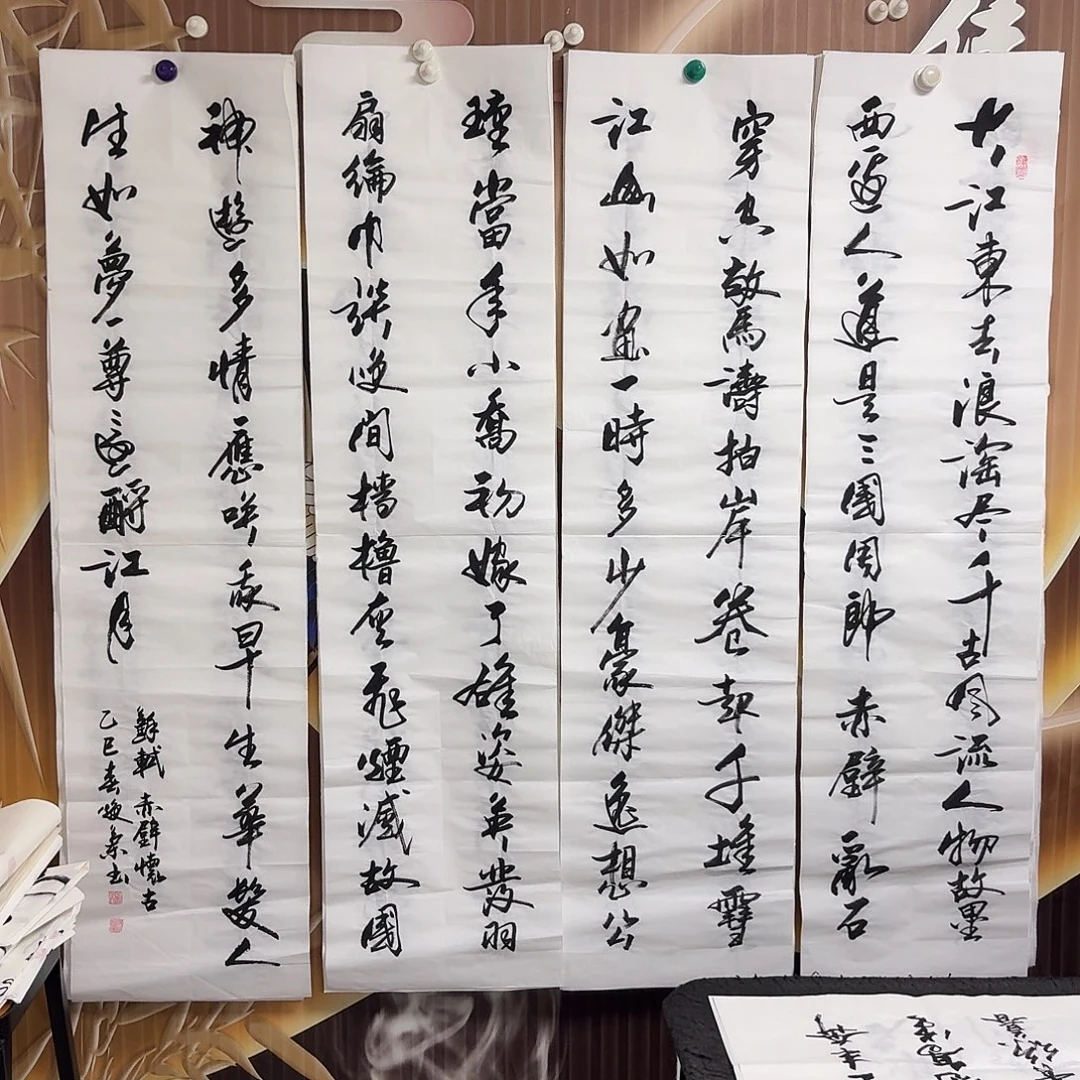 大江東去浪淘尽千古风流人物故壘
西邊人道是三國周郎赤壁亂石
穿空驚濤拍岸卷起千堆雪
江山如畫一時多少豪傑遥想公
瑾當年小喬初嫁了雄姿英發羽
扇綸巾談笑間檣櫓灰飛煙滅故國
神遊多情應笑我早生華髮人
生如夢一尊還酹江月
蘇軾赤壁懷古
乙巳春